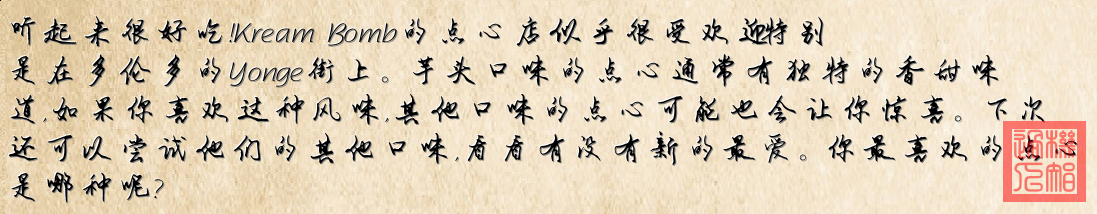 听起来很好吃!Kream Bomb的点心店似乎很受欢迎特别
是在多伦多的Yonge街上。芋头口味的点心通常有独特的香甜味
道,如果你喜欢这种风味,其他口味的点心可能也会让你惊喜。下次
还可以尝试他们的其他口味,看看有没有新的最爱。你最喜欢的点心
是哪种呢?